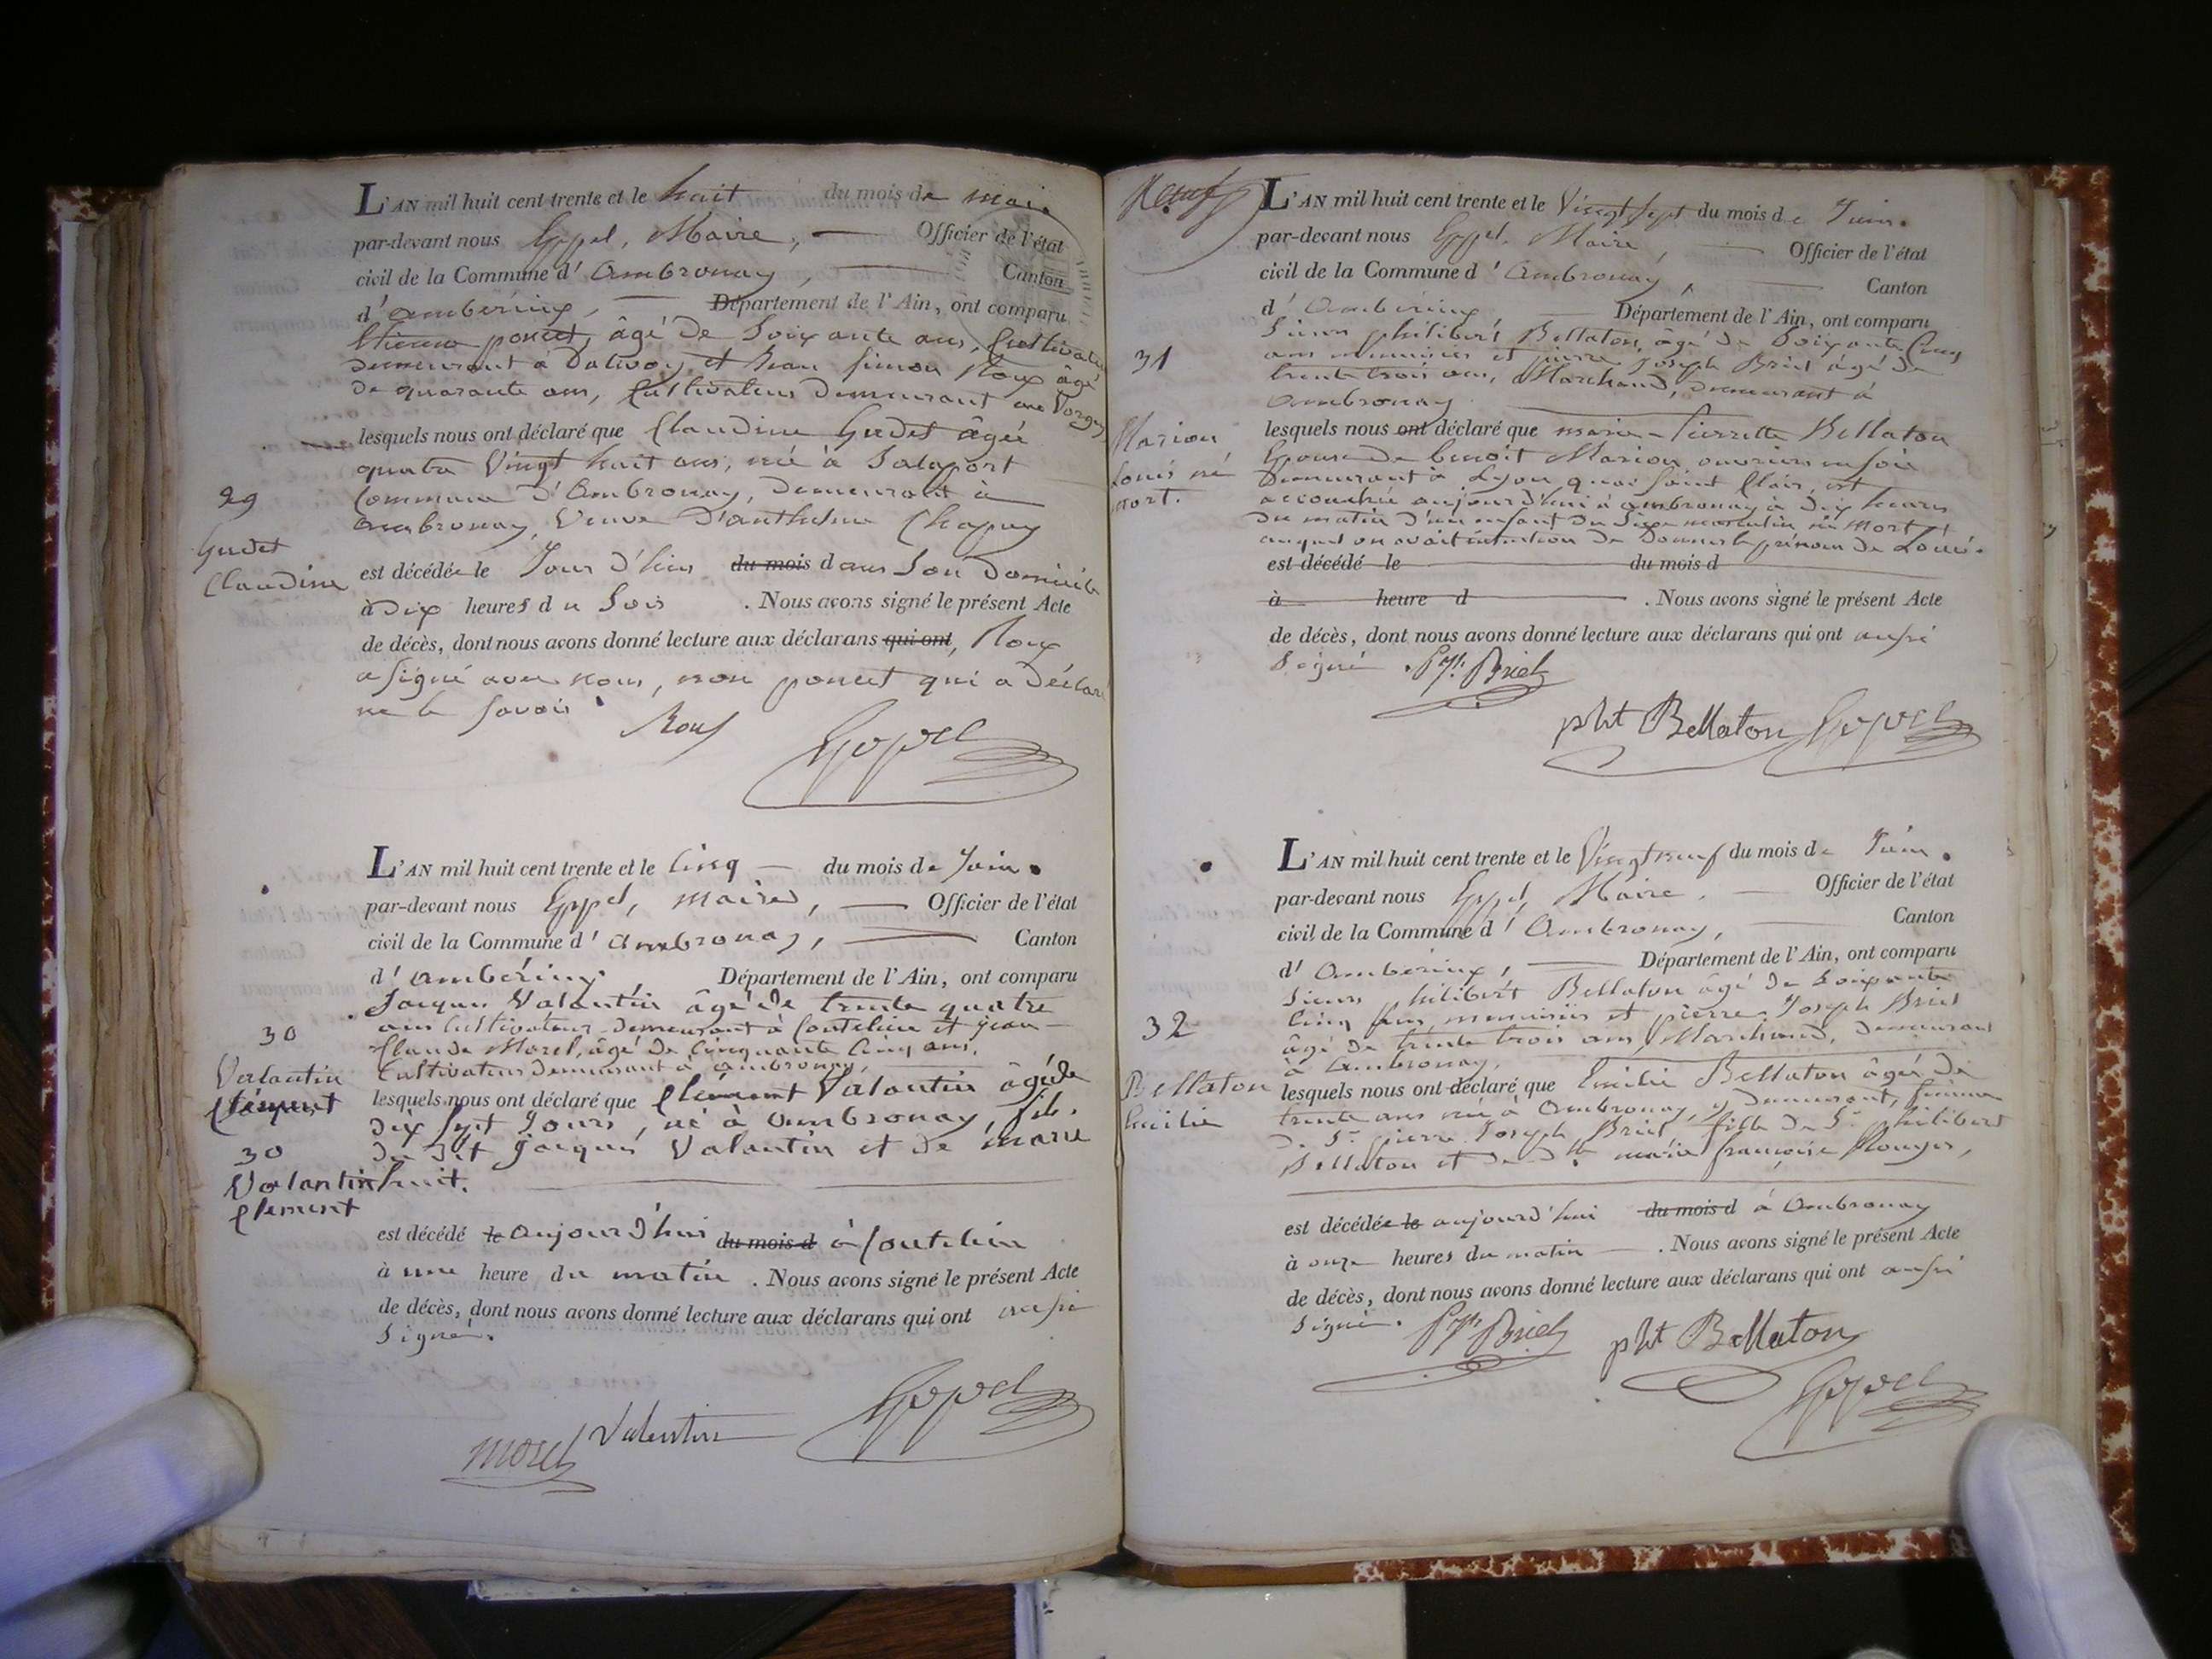 L'AN mil huit cent trente et le huit du mois de mai.
par-devant nous Goppel, Maire, Officier de l'état
civil de la Commune d'Ambronay, Canton
d'ambérieux, Département de l'Ain, ont comparu
Etienne poncet, âgé de Soixante ans, Cultivateur
demeurant à et Jean Simon Roux âgé
de quarante ans, Cultivateur demeurant au
lesquels nous ont déclaré que Claudine Gudet âgée
quatre Vingt huit ans, née à Salaport
Commune d'Ambronay, demeurant à
ambronay, Veuve d'anthelme Chapuy
29
Gudet
Claudine
est décédée le Jour d'hier du mois dans Son Domicile
à Dix heures du Soir. Nous avons signé le présent Acte
de décès, dont nous avons donné lecture aux déclarans qui ont, Roux
a signé avec nous, non poncet qui a déclaré
ne le savoir.
Roux
L'AN mil huit cent trente et le Cinq du mois de Juin.
par-devant nous Goppel, Maire, Officier de l'état
civil de la Commune d'Ambronay, Canton
d'ambérieux. Département de l'Ain, ont comparu
Jacques Valantin âgé de trente quatre
ans Cultivateur demeurant à Coutelieu et jean
Claude Morel, âgé de Cinquante Cinq ans,
Cultivateur demeurant à ambronay,
30
Valantin
Clément
lesquels nous ont déclaré que Clément Valantin âgé de
dix Sept Jours, né à Ambronay, fils
du dit Jacques Valantin et de marie
huit.
30
Valantin
Clement
est décédé le aujourd'hui du mois d à Coutelieu
à une heure du matin. Nous avons signé le présent Acte
de décès, dont nous avons donné lecture aux déclarans qui ont aussi
Signé.
Morel Valentin
L'AN mil huit cent trente et le Vingt Sept du mois de Juin.
par-devant nous Goppel, Maire Officier de l'état
civil de la Commune d'Ambronay, Canton
d'Ambérieux, Département de l'Ain, ont comparu
Sieurs philibert Bellaton, âgé de Soixante Cinq
ans menuisier et pierre Joseph Briel âgé de
trente trois ans, Marchand, demeurant à
Ambronay.
31
Marion
Louis né
mort.
lesquels nous ont déclaré que marie-Pierrette Bellaton
Epouse de benoit Marion, ouvrier en soie
Demeurant à Lyon, quai Saint Clair, est
accouchée aujourd'hui à ambronay à dix heures
du matin d'un enfant du Sexe masculin né mort,
auquel on avait intention de donner le prénom de Louis.
est décédé le du mois d
à heure d. Nous avons signé le présent Acte
de décès, dont nous avons donné lecture aux déclarans qui ont aussi
Signé. Briel
phbt Bellaton
L'AN mil huit cent trente et le Vingt neuf du mois de Juin.
par-devant nous Goppel, Maire, Officier de l'état
civil de la Commune d'Ambronay, Canton
d'Ambérieux, Département de l'Ain, ont comparu
Sieurs philibert Bellaton âgé de Soixante
Cinq ans menuisier et pierre Joseph Briel
âgé de trente trois ans, Marchand, demeurant
à Ambronay.
32
Bellaton
Emilie
lesquels nous ont déclaré que Emilie Bellaton âgée de
trente ans née à Ambronay, y demeurant, femme
de Sr pierre Joseph Briel, fille de Sr philibert
Bellaton et de marie françoise
est décédée le aujourd'hui du mois d à Ambronay
à onze heures du matin. Nous avons signé le présent Acte
de décès, dont nous avons donné lecture aux déclarans qui ont aussi
Signé. Briel phbt Bellaton